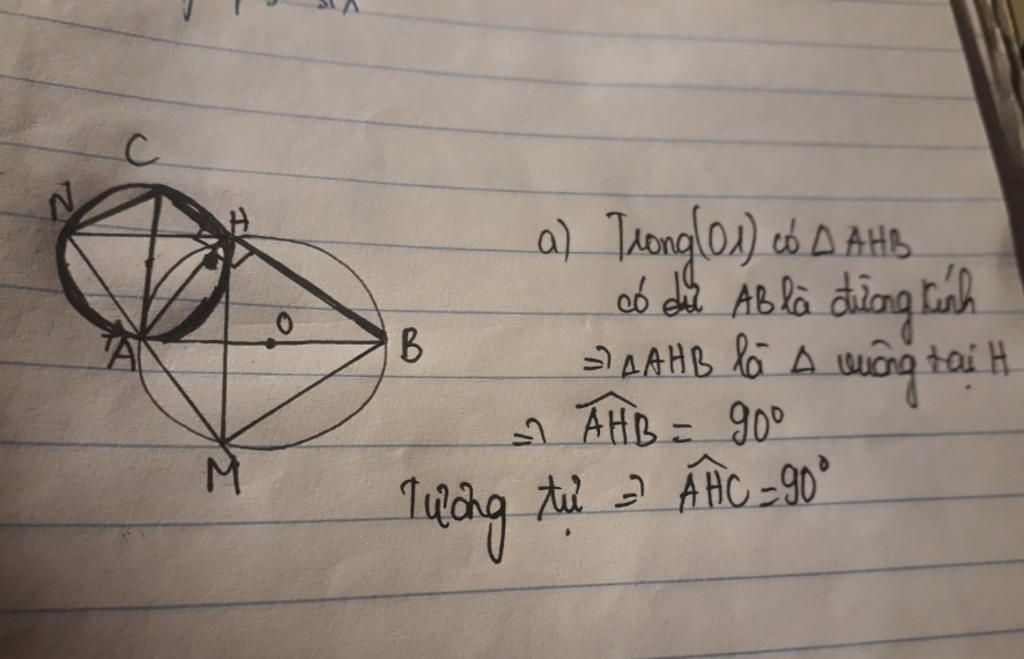 C
N
H
a) Trong(O1) có △ AHB
có AB là đường kính
O
A
B
⇒ △AHB là △ vuông tại H
⇒ AHB = 90°
M
Tương tự ⇒ AHC = 90°